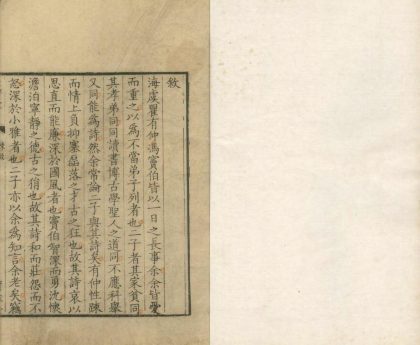 敘
海虞瞿有仲馮竇伯皆以一日之長事余余皆愛
而重之以為不當弟子列者也二子者其家貧同
其孝弟同同讀書博古學聖人之道同不應科舉
又同能為詩然余常論二子與其詩矣有仲性踈
而情上負抑塞磊落之才古之狂也故其詩哀以
思直而能廉深於國風者也竇伯智深而勇沈懷
澹泊寧靜之德古之狷也故其詩和而莊怨而不
怒深於小雅者也二子亦以余為知言余老矣竊